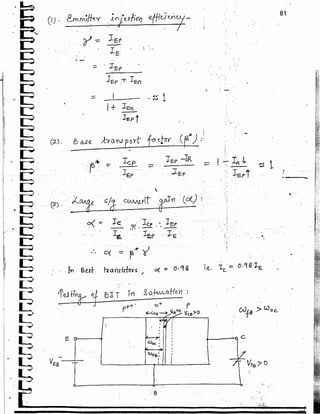 81
(1). Emmitter injection efficiency -
γ = IEP / IE
= IEP / IEP + IEn
= 1 / 1 + IEn / IEP↑ ≈ 1
(2). Base transport factor (β*) :
β* = ICP / IEP = IEP - IR / IEP = 1 - IR↓ / IEP↑ ≈ 1
(3). Large s/g current gain (α) :
α = IC / IE ≈ ICP / IEP · IEP / IE
∴ α = β* γ
In Best transistors, α = 0.98 i.e. IC = 0.98 IE
Testing of BJT in Saturation :
P++ n+ P
VCB>0
E C
VEB VCB>0
B